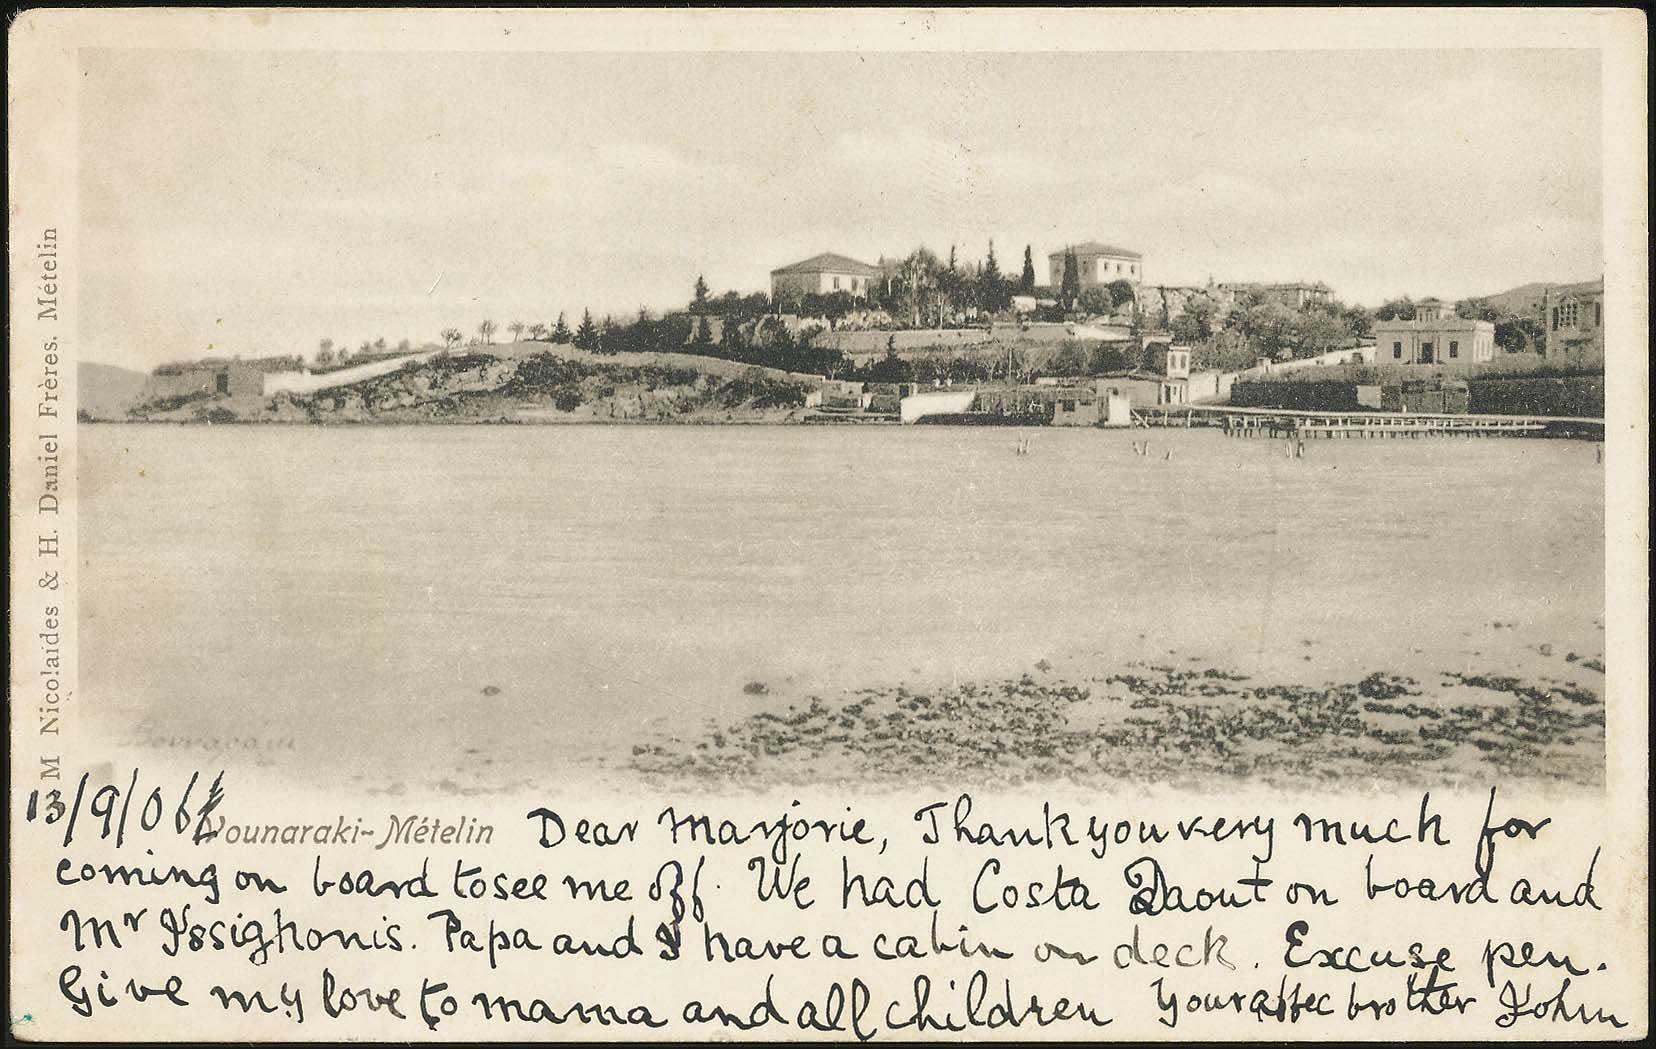 M Nicolaides & H. Daniel Frères. Mételin
13/9/06
Vounaraki-Mételin
Dear Marjorie, Thank you very much for
coming on board to see me off. We had Costa Daout on board and
Mr Issighonis. Papa and I have a cabin on deck. Excuse pen.
Give my love to mama and all children Your affec brother John